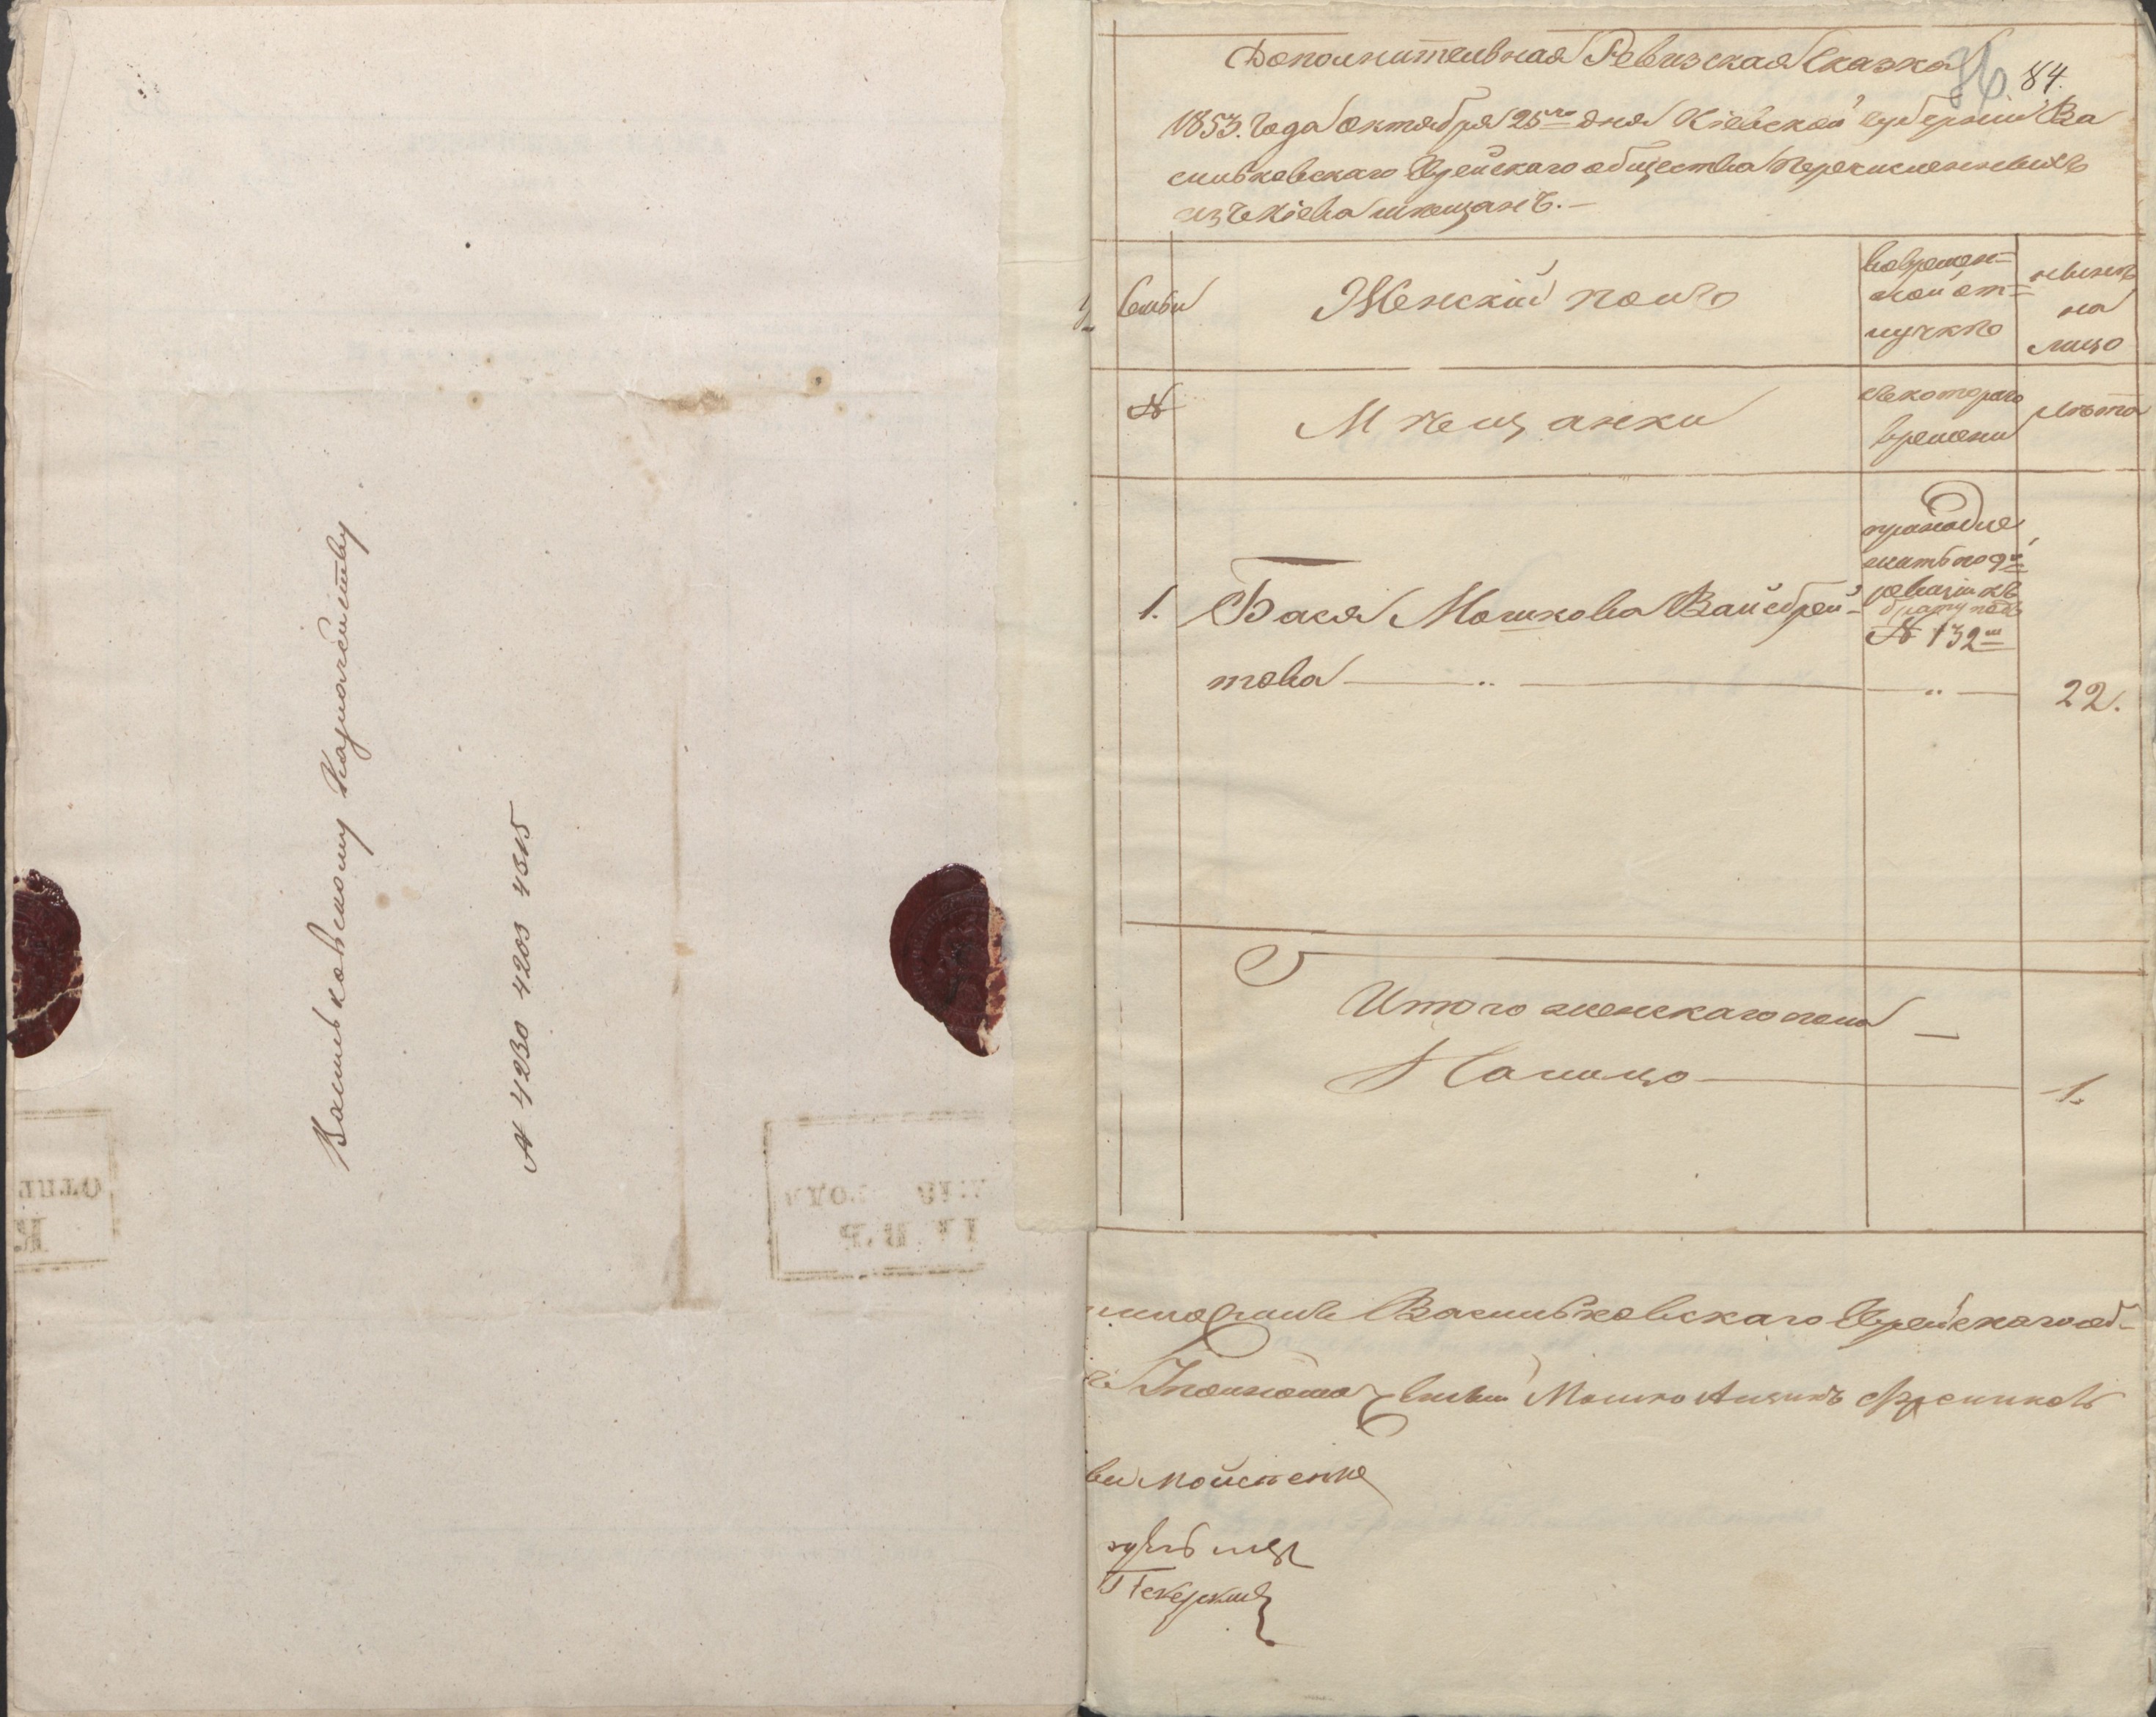 Васильковскому Казначейству
№ 4230 4203 4315
Дополнительная Ревизская Сказка
84.
1853. Года октября 25го дня Кіевской губерніи Ва
сильковскаго Еврейскаго общества перечисленныхъ
изъ Кіева мещанъ. —
Семьи
Женскій полъ
во времен=
ной от=
лучке
ныне
на
лицо
№
Мещанки
съ котораго
времени
лета
1.
Бася Мошкова Вайсбрей-
това — „ —
принадле
жатъ по 9й
ревизіи къ
брату подъ
№ 132м
— „ —
22.
Итого женскаго пола —
На лицо —
1.
Васильковскаго Еврейскаго об-
Мошко Ицикъ
Мойсеенка
Пекерскій